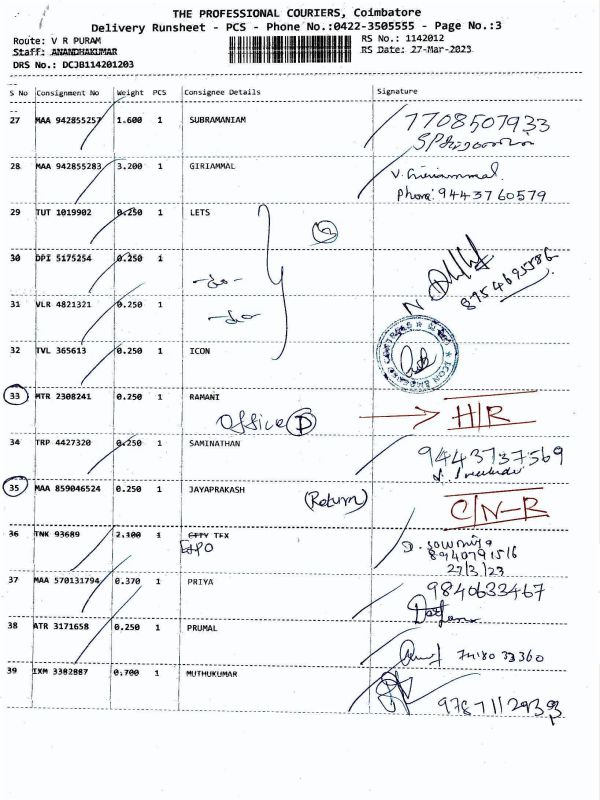 THE PROFESSIONAL COURIERS, Coimbatore
Delivery Runsheet - PCS - Phone No.:0422-3505555 - Page No.:3
Route: V R PURAM
RS No.: 1142012
Staff: ANANDHAKUMAR
RS Date: 27-Mar-2023
DRS No.: DCJB114201203
S No Consignment No Weight PCS Consignee Details Signature
27 MAA 942855257 1.600 1 SUBRAMANIAM 7708507933
28 MAA 942855283 3.200 1 GIRIAMMAL V. Giriammal
Phone: 9443760579
29 TUT 1019902 0.250 1 LETS
3
30 DPI 5175254 0.250 1
-do-
8954695586
31 VLR 4821321 0.250 1 -do-
32 TVL 365613 0.250 1 ICON
33 MTR 2308241 0.250 1 RAMANI
Office D H/R
34 TRP 4427320 0.250 1 SAMINATHAN 9443737569
35 MAA 859046524 0.250 1 JAYAPRAKASH (Return) C/N-R
36 TNK 93689 2.100 1 CITY TEX
EXPO D. Sowmiya
8940791516
27/3/23
37 MAA 570131794 0.370 1 PRIYA 9840633467
38 ATR 3171658 0.250 1 PRUMAL
33360
39 IXM 3382887 0.700 1 MUTHUKUMAR
9787112933